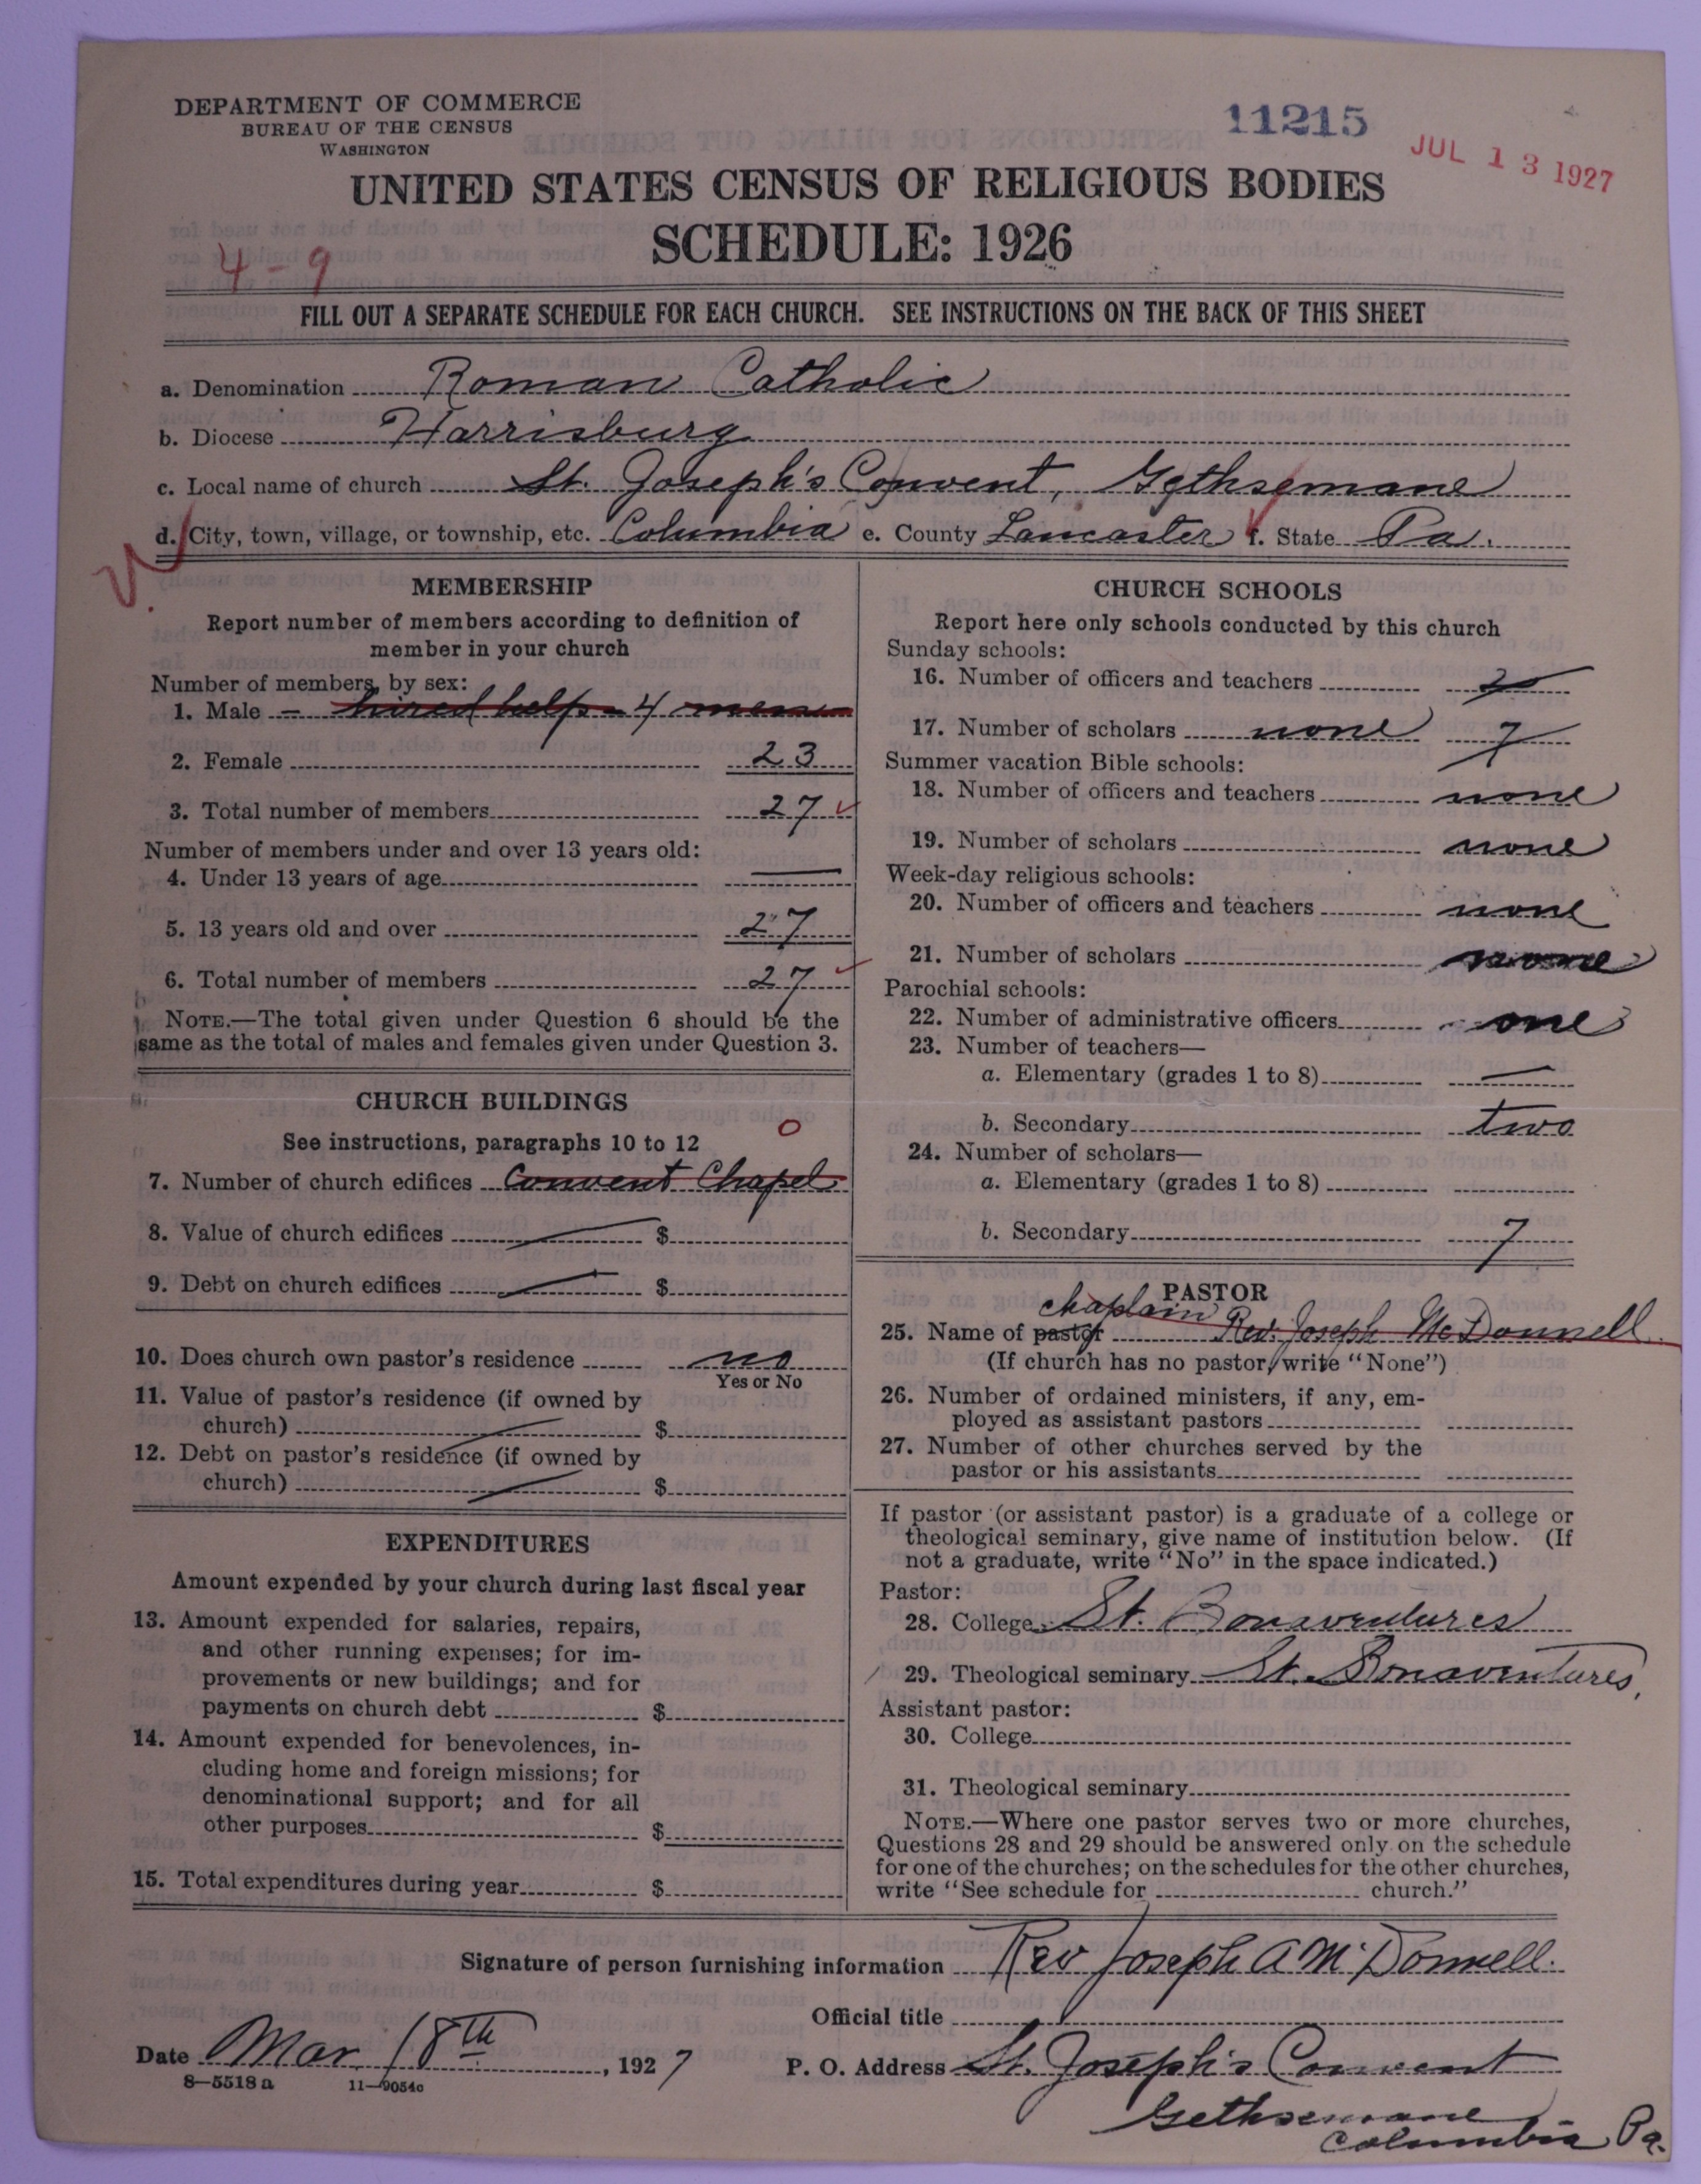 DEPARTMENT OF COMMERCE
BUREAU OF THE CENSUS
WASHINGTON
11215
JUL 13 1927
UNITED STATES CENSUS OF RELIGIOUS BODIES
SCHEDULE: 1926
4-9
FILL OUT A SEPARATE SCHEDULE FOR EACH CHURCH. SEE INSTRUCTIONS ON THE BACK OF THIS SHEET
a. Denomination Roman Catholic
b. Diocese Harrisburg
c. Local name of church St. Joseph's Convent, Gethsemane
d. City, town, village, or township, etc. Columbia e. County Lancaster f. State Pa.
MEMBERSHIP
Report number of members according to definition of
member in your church
Number of members, by sex:
1. Male — hired help - 4 men
2. Female 23
3. Total number of members 27
Number of members under and over 13 years old:
4. Under 13 years of age —
5. 13 years old and over 27
6. Total number of members 27
NOTE.—The total given under Question 6 should be the
same as the total of males and females given under Question 3.
CHURCH BUILDINGS
See instructions, paragraphs 10 to 12
0
7. Number of church edifices Convent Chapel
8. Value of church edifices — $
9. Debt on church edifices — $
10. Does church own pastor's residence no
Yes or No
11. Value of pastor's residence (if owned by
church) — $
12. Debt on pastor's residence (if owned by
church) — $
EXPENDITURES
Amount expended by your church during last fiscal year
13. Amount expended for salaries, repairs,
and other running expenses; for im-
provements or new buildings; and for
payments on church debt $
14. Amount expended for benevolences, in-
cluding home and foreign missions; for
denominational support; and for all
other purposes $
15. Total expenditures during year $
CHURCH SCHOOLS
Report here only schools conducted by this church
Sunday schools:
16. Number of officers and teachers 2
17. Number of scholars none 7
Summer vacation Bible schools:
18. Number of officers and teachers none
19. Number of scholars none
Week-day religious schools:
20. Number of officers and teachers none
21. Number of scholars none
Parochial schools:
22. Number of administrative officers one
23. Number of teachers—
a. Elementary (grades 1 to 8) —
b. Secondary two
24. Number of scholars—
a. Elementary (grades 1 to 8)
b. Secondary 7
PASTOR
chaplain
25. Name of pastor Rev. Joseph McDonnell
(If church has no pastor, write "None")
26. Number of ordained ministers, if any, em-
ployed as assistant pastors
27. Number of other churches served by the
pastor or his assistants
If pastor (or assistant pastor) is a graduate of a college or
theological seminary, give name of institution below. (If
not a graduate, write "No" in the space indicated.)
Pastor:
28. College St. Bonaventures
29. Theological seminary St. Bonaventures,
Assistant pastor:
30. College
31. Theological seminary
NOTE.—Where one pastor serves two or more churches,
Questions 28 and 29 should be answered only on the schedule
for one of the churches; on the schedules for the other churches,
write "See schedule for church."
Signature of person furnishing information Rev Joseph A McDonnell.
Official title
Date Mar. 18th, 1927 P. O. Address St. Joseph's Convent
8—5518a 11—9054c
Gethsemane
Columbia Pa.